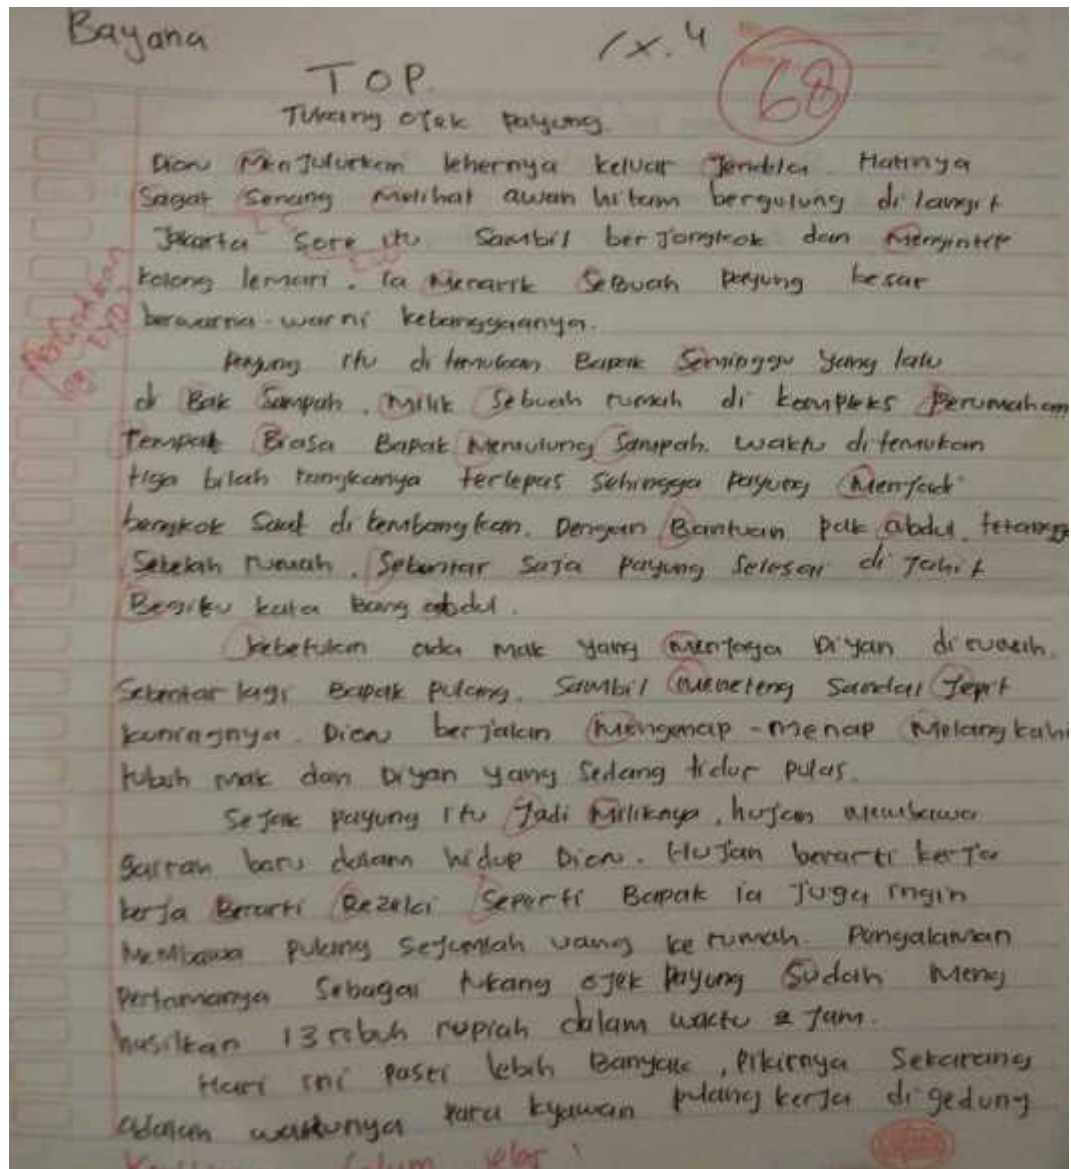 Bayana
IX.4
68
TOP.
Tukang ojek payung.
Dion MenJulurkan lehernya keluar Jendela Hatinya
Sagat Senang Melihat awan hitam bergulung di langit
Jakarta Sore itu Sambil ber Jongkok dan Mengintip
kolong lemari. Ia Menarik Sebuah payung besar
berwarna-warni kebanggaanya.
Perhatikan
lag EYD!
Payung Itu di temukan Bapak Seminggu yang lalu
di Bak Sampah. Milik Sebuah rumah di kompleks Perumahan
Tempat Biasa Bapak Memulung Sampah. Waktu di temukan
tiga bilah rangkanya terlepas Sehingga Payung Menjadi
bengkok Saat di kembangkan. Dengan Bantuan pak abdul. tetangga
Sebelah rumah. Sebentar Saja payung Selesai di Jahit
Begitu kata Bang abdul.
Kebetulan ada Mak yang Menjaga Diyan di rumah.
Sebentar lagi Bapak pulang. Sambil Meneteng Sandal Jepit
kuningnya. Dion berJalan Mengenap-menap Melangkahi
tubuh Mak dan Diyan yang Sedang tidur pulas.
SeJak payung Itu Jadi Miliknya, hujan Membawa
gairah baru dalam hidup Dion. HuJan berarti kerJa
kerJa Berarti Rezeki Seperti Bapak ia Juga ingin
Membawa pulang SeJumlah uang ke rumah. Pengalaman
Pertamanya Sebagai tukang oJek Payung Sudah Meng
hasilkan 13 ribuh rupiah dalam waktu 2 Jam.
Hari ini Pasti lebih Banyak, Pikirnya Sekarang
adalah waktunya Para kyawan pulang kerJa di gedung